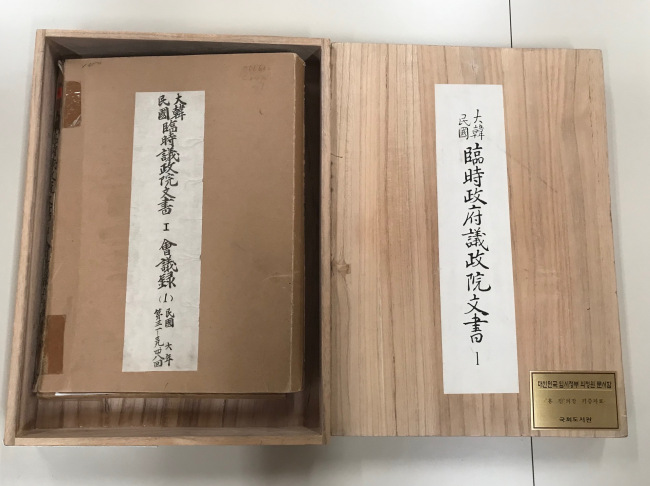 大韓
民國
臨時議政院文書 I 會議錄 (1)
民國 六年
大韓
民國
臨時政府議政院文書 1
대한민국 임시정부 의정원 문서함
국회도서관